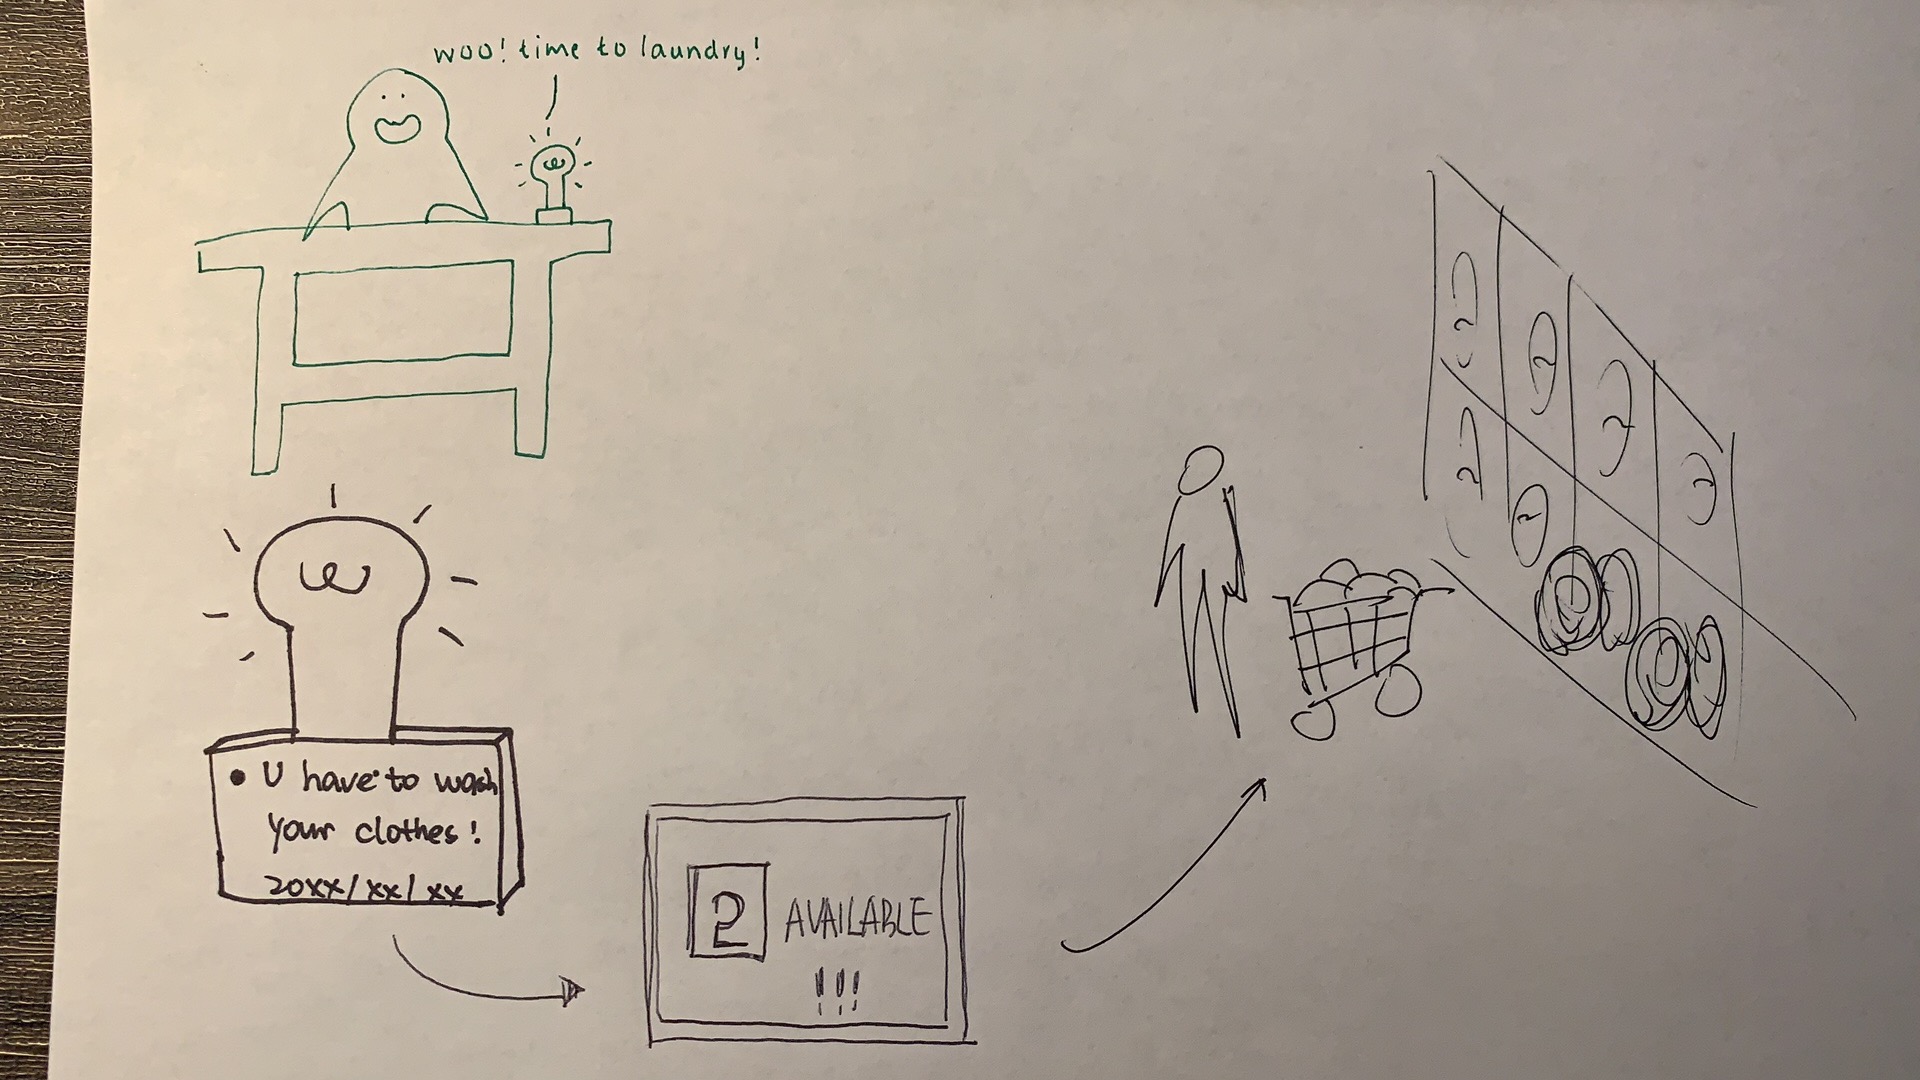 woo! time to laundry!
• U have to wash
your clothes!
20xx/xx/xx
2 AVAILABLE
!!!